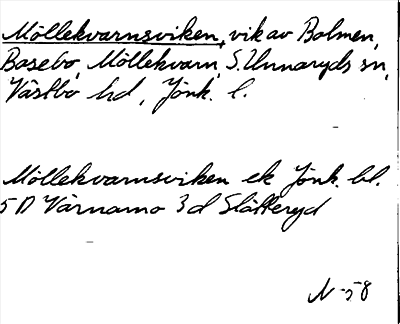 Möllekvarnsviken, vik av Bolmen,
Bosebo, Möllekvarn, S. Unnaryds sn,
Västbo hd, Jönk. l.
Möllekvarnsviken ek Jönk. bl.
5D Värnamo 3d Slätteryd
N-58